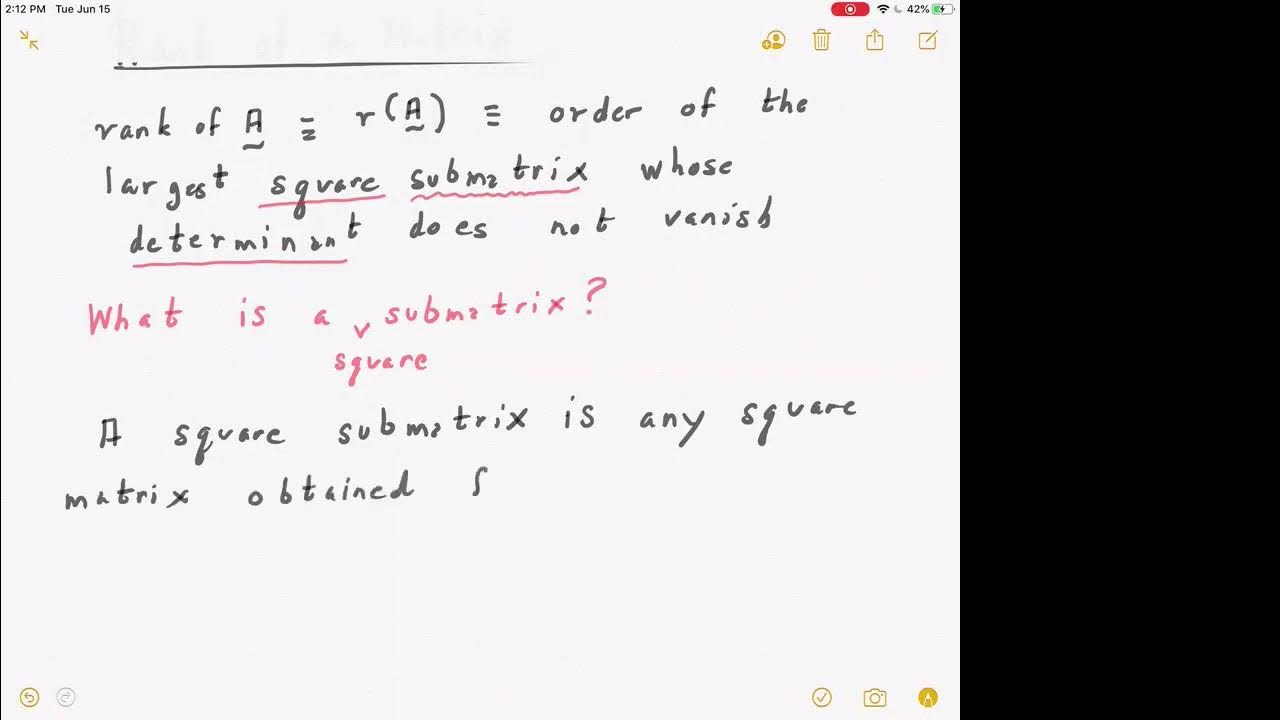 2:12 PM Tue Jun 15
42%
Rank of a Matrix
rank of A ≡ r(A) ≡ order of the
largest square submatrix whose
determinant does not vanish
What is a submatrix?
square
A square submatrix is any square
matrix obtained f